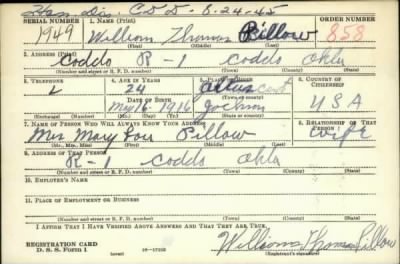 Has dis. C D D - 8-24-45
SERIAL NUMBER 1. NAME (Print) ORDER NUMBER
1949 William Thomas Pillow 858
(First) (Middle) (Last)
2. ADDRESS (Print)
R-1 Okla
(Number and street or R. F. D. number) (Town) (County) (State)
3. TELEPHONE 4. AGE IN YEARS 5. PLACE OF BIRTH 6. COUNTRY OF CITIZENSHIP
24 Altus
DATE OF BIRTH
1916 Jackson U S A
(Exchange) (Number) (Mo.) (Day) (Yr.) (Town or county) (State or country)
7. NAME OF PERSON WHO WILL ALWAYS KNOW YOUR ADDRESS 8. RELATIONSHIP OF THAT PERSON
Mrs Mary Lou Pillow wife
(Mr., Mrs., Miss) (First) (Middle) (Last)
9. ADDRESS OF THAT PERSON
R-1 Okla
(Number and street or R. F. D. number) (Town) (County) (State)
10. EMPLOYER'S NAME
11. PLACE OF EMPLOYMENT OR BUSINESS
(Number and street or R. F. D. number) (Town) (County) (State)
I AFFIRM THAT I HAVE VERIFIED ABOVE ANSWERS AND THAT THEY ARE TRUE.
REGISTRATION CARD
D. S. S. Form 1 (over) William Thomas Pillow
(Registrant's signature)